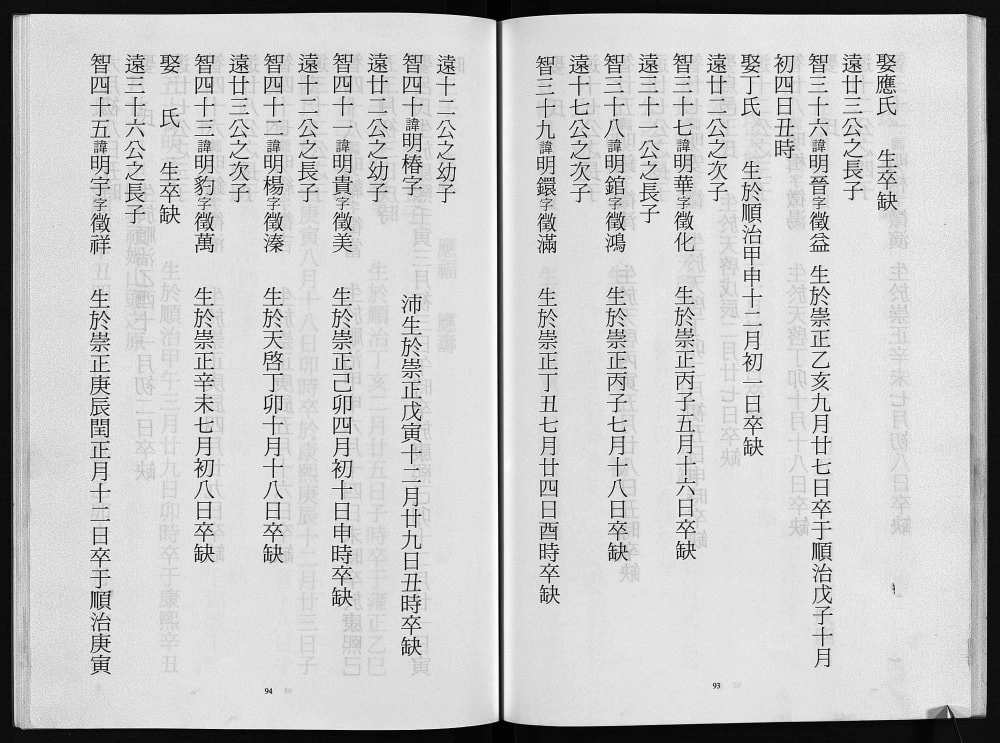 娶應氏　生卒缺
遠廿三公之長子
智三十六諱明晉字徵益　生於崇正乙亥九月廿七日卒于順治戊子十月
初四日丑時
娶丁氏　生於順治甲申十二月初一日卒缺
遠廿二公之次子
智三十七諱明華字徵化　生於崇正丙子五月十六日卒缺
遠三十一公之長子
智三十八諱明錧字徵鴻　生於崇正丙子七月十八日卒缺
遠十七公之次子
智三十九諱明鐶字徵滿　生於崇正丁丑七月廿四日酉時卒缺
93
遠十二公之幼子
智四十諱明椿字　沛生於崇正戊寅十二月廿九日丑時卒缺
遠廿二公之幼子
智四十一諱明貴字徵美　生於崇正己卯四月初十日申時卒缺
遠十二公之長子
智四十二諱明楊字徵溱　生於天啓丁卯十月十八日卒缺
遠廿三公之次子
智四十三諱明豹字徵萬　生於崇正辛未七月初八日卒缺
娶　氏　生卒缺
遠三十六公之長子
智四十五諱明宇字徵祥　生於崇正庚辰閏正月十二日卒于順治庚寅
94